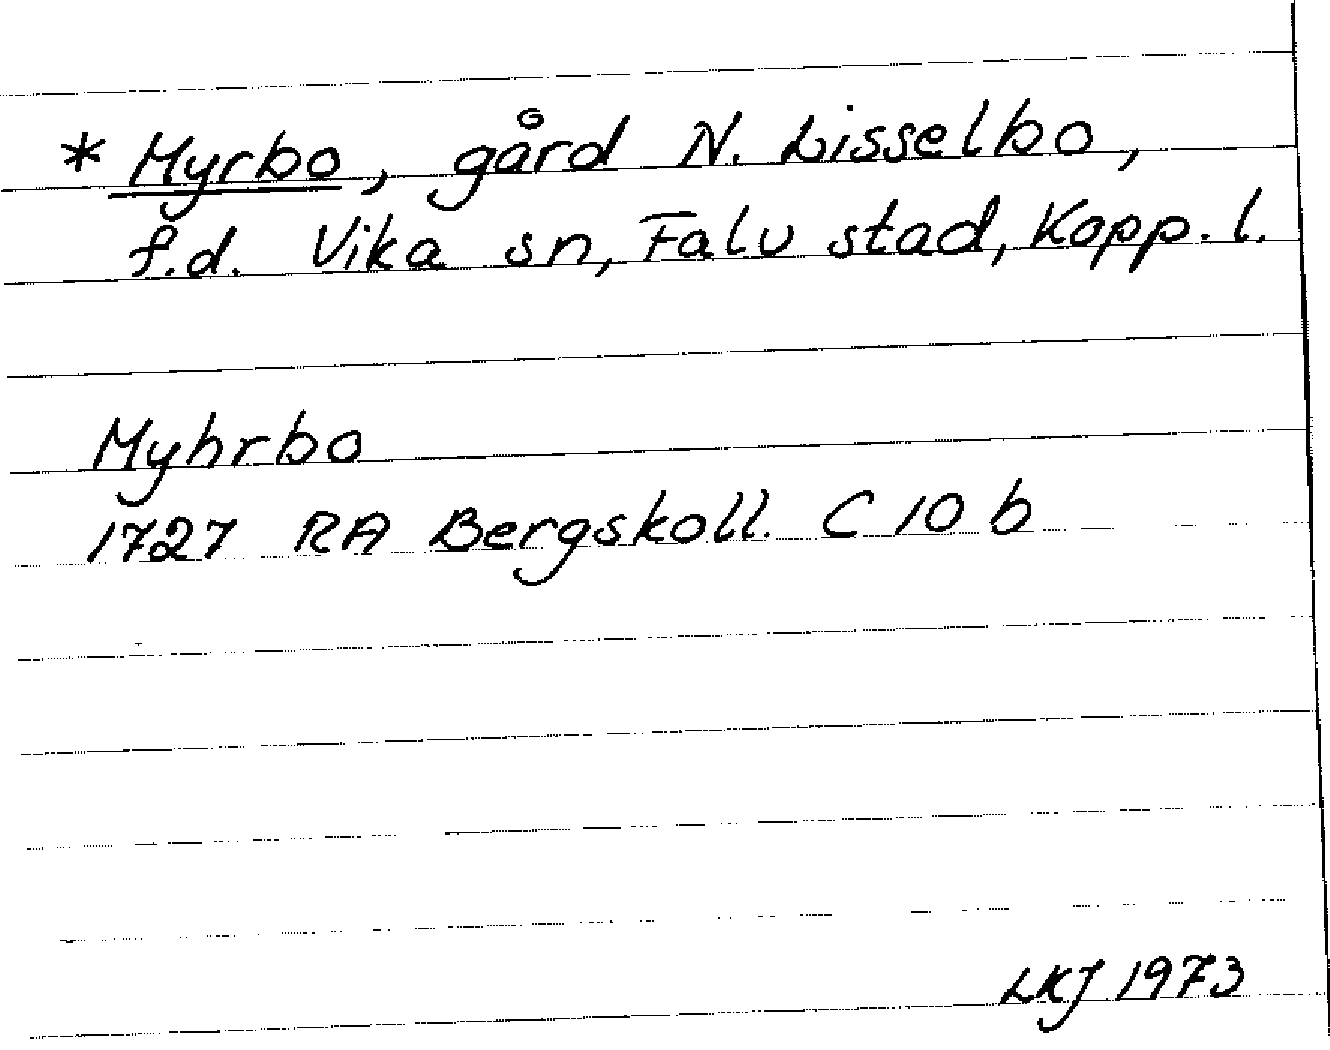 * Myrbo, gård N. Lisselbo,
f.d. Vika sn, Falu stad, Kopp. l.
Myhrbo
1727 RA Bergskoll. C 10 b
LKJ 1973